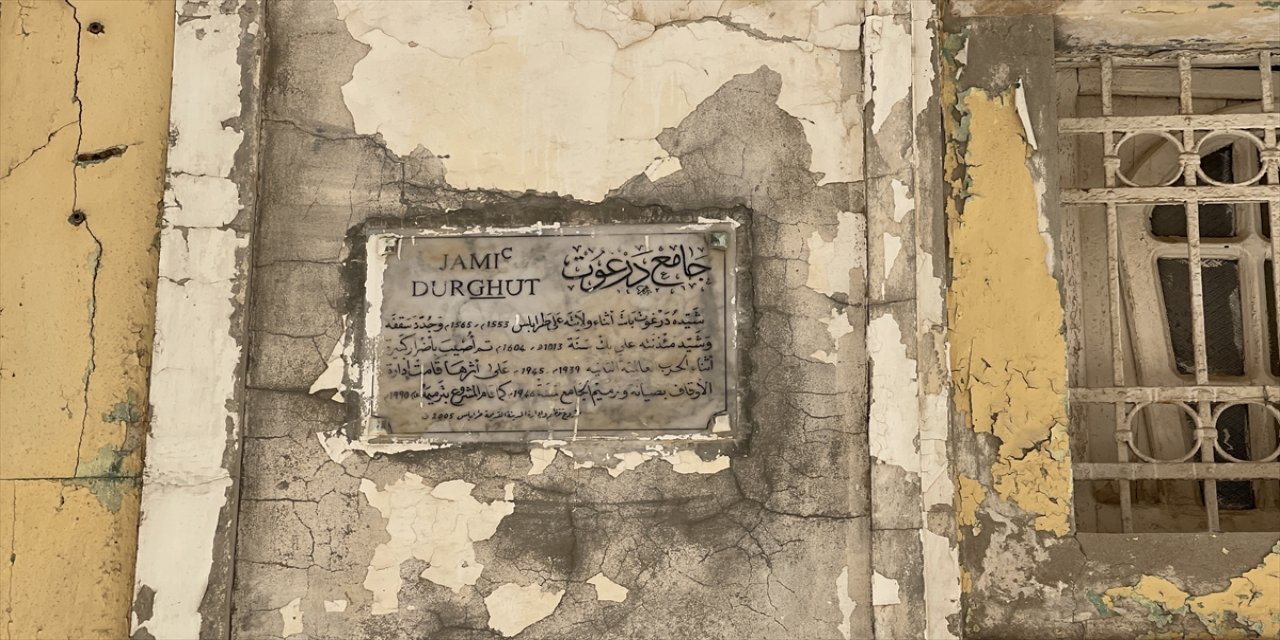 JAMIᶜ
DURGHUT
جامع دَرْغُوت
شَيّده دَرغوت باشا أثناء ولايته على طرابلس 1553م - 1565م وَجُدّد سَقفه
وشيّد مئذنته علي بك سَنة 1013هـ - 1604م تم أُصيبَ بأضرار كبيرة
أثناء الحرب العالمية الثانية 1939م - 1945م على أثرها قامت إدارة
الأوقاف بصيانة وترميم الجامع سَنةَ كما قام المشروع بترميمه 1990م
إدارة المدينة القديمة طرابلس 2005